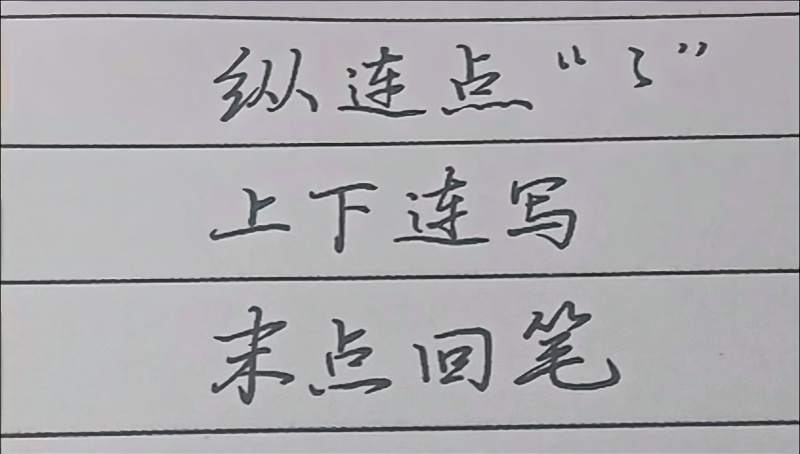 纵连点“⺀”
上下连写
末点回笔